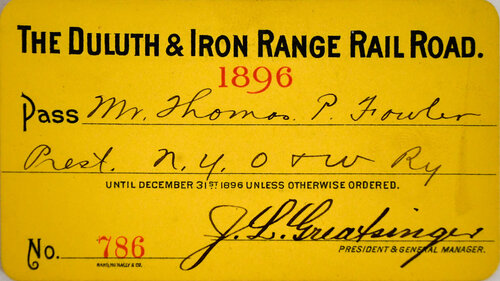 THE DULUTH & IRON RANGE RAIL ROAD.
1896
Pass Mr. Thomas P. Fowler
Prest. N. Y. O & W Ry
UNTIL DECEMBER 31ST 1896 UNLESS OTHERWISE ORDERED.
J. L. Greatsinger
PRESIDENT & GENERAL MANAGER.
No. 786
RAND, MCNALLY & CO.